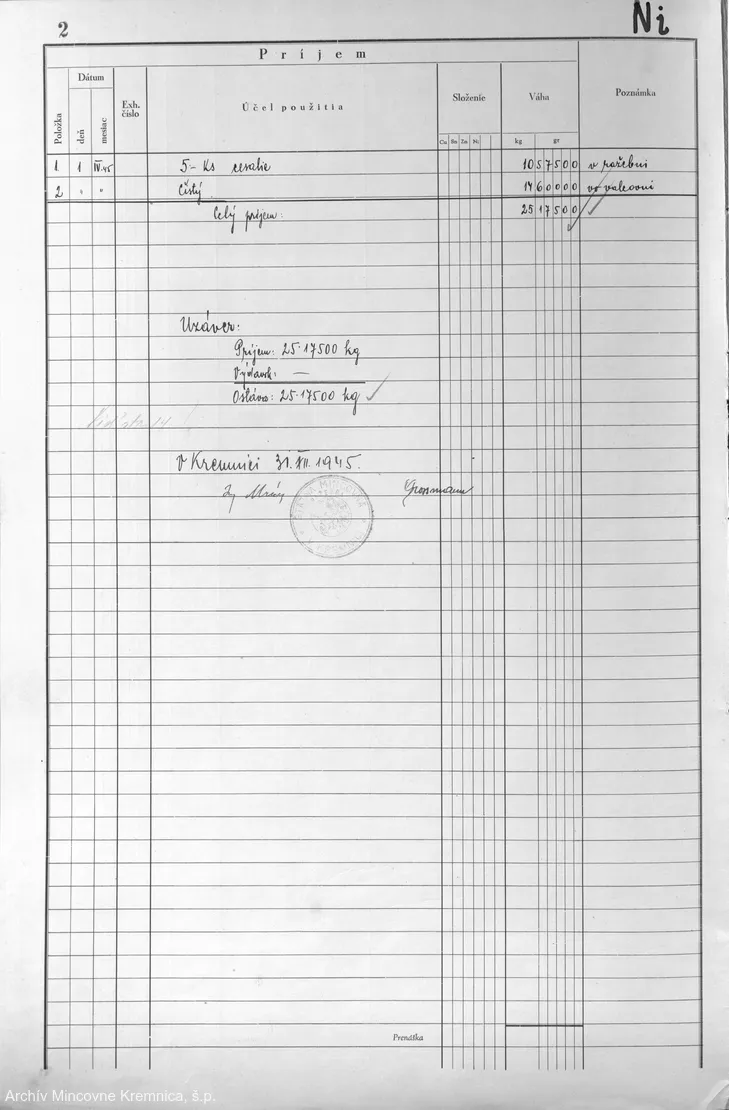 2
Ni
Príjem
Položka
Dátum
deň
mesiac
Exh. číslo
Účel použitia
Složenie
Cu Sn Zn Ni
Váha
kg gr
Poznámka
1 1 IV.45 5- Ks cesalie 1057500 v ražebni
2 " " Čistý 1460000 vo valcovni
Celý príjem: 2517500
Uzáver:
Príjem: 25·17500 kg
Výdavk: —
Ostáva: 25·17500 kg
V Kremnici 31.XII.1945.
Grossmann
Prenáška
Archív Mincovne Kremnica, š.p.